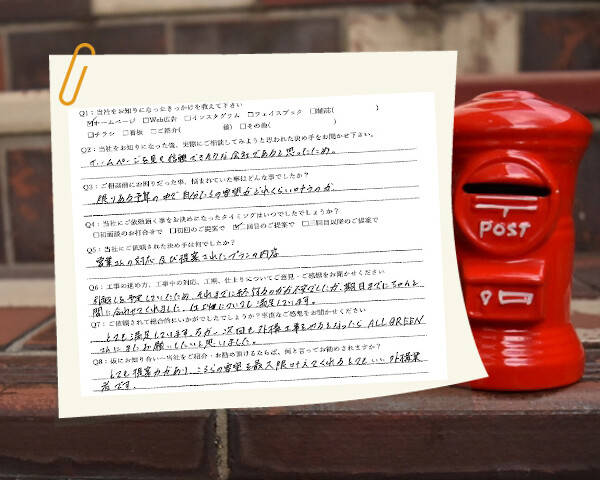 Q1：当社をお知りになったきっかけを教えて下さい
☑ホームページ □Web広告 □インスタグラム □フェイスブック □雑誌(　　　)
□チラシ □看板 □ご紹介(　　　様) □その他(　　　)
Q2：当社をお知りになった後、実際にご相談してみようと思われた決め手をお聞かせ下さい。
ホームページを見て信頼できそうな会社であると思ったため。
Q3：ご相談前にお困りだった事、悩まれていた事はどんな事でしたか？
限りある予算の中で自分たちの要望がどれくらい叶うのか
Q4：当社にご依頼頂く事をお決めになったタイミングはいつでしたでしょうか？
□初面談のお打合せで □初回のご提案で ☑二回目のご提案で □三回目以降のご提案で
Q5：当社にご依頼された決め手は何でしたか？
営業さんの対応及び提案されたプランの内容
Q6：工事の進め方、工事中の対応、工期、仕上りについてご意見・ご感想をお聞かせください
引越しを予定していたため、それまでに終わるのかが不安でしたが、期日までにちゃんと
間に合わせてくれました。仕上がりについても満足しています。
Q7：ご依頼されて総合的にいかがでしたでしょうか？率直なご感想をお聞かせください
とても満足しています。万が一次回も外構工事をやるとなったら ALL GREEN
さんにまたお願いしたいと思いました。
Q8：仮にお知り合いへ当社をご紹介・お勧め頂けるならば、何と言ってお勧めされますか？
とても提案力があり、こちらの要望を最大限叶えてくれるとてもいい外構業
者です。
POST